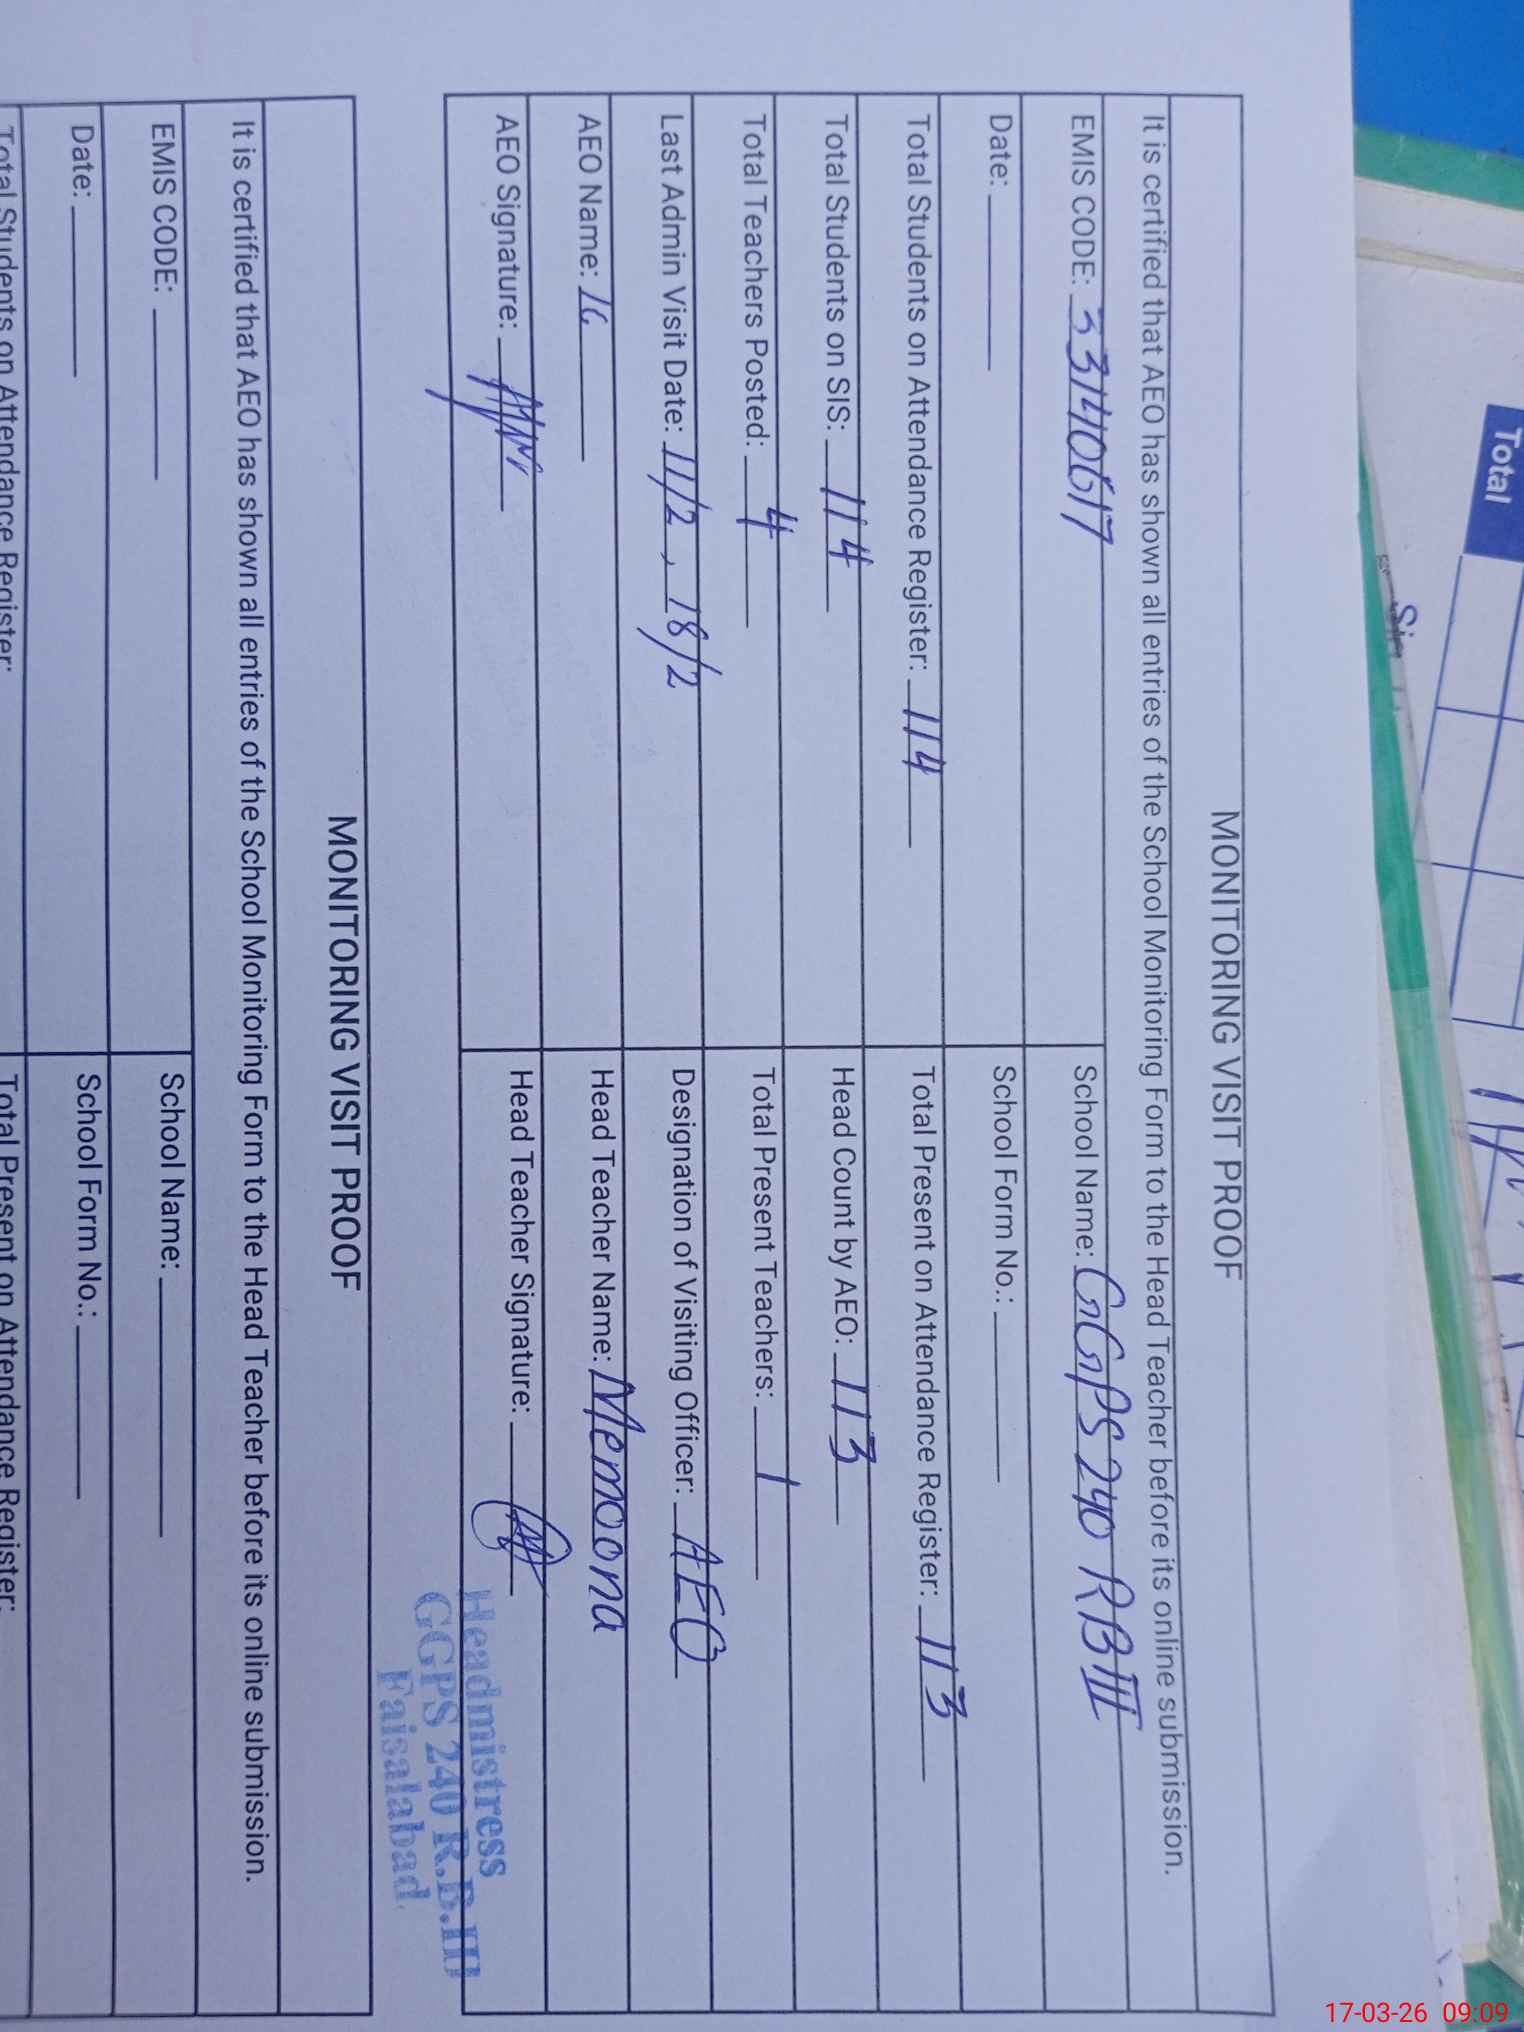 MONITORING VISIT PROOF
It is certified that AEO has shown all entries of the School Monitoring Form to the Head Teacher before its online submission.
EMIS CODE: 33140617 School Name: GGPS 240 RB III
Date: School Form No.:
Total Students on Attendance Register: 114 Total Present on Attendance Register: 113
Total Students on SIS: 114 Head Count by AEO: 113
Total Teachers Posted: 4 Total Present Teachers: 1
Last Admin Visit Date: 11/2, 18/2 Designation of Visiting Officer: AEO
AEO Name: 16 Head Teacher Name: Memoona
AEO Signature: Head Teacher Signature:
Headmistress
GGPS 240 R.B.III
Faisalabad.
MONITORING VISIT PROOF
It is certified that AEO has shown all entries of the School Monitoring Form to the Head Teacher before its online submission.
EMIS CODE: School Name:
Date: School Form No.:
Total Students on Attendance Register: Total Present on Attendance Register:
Total
17-03-26 09:09